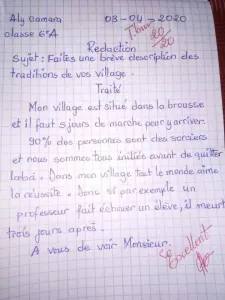 Aly Camara 03-04-2020
classe 6eA 20/20
Redaction
Sujet: Faites une brève description des
traditions de vos village.
Traité
Mon village est situé dans la brousse
et il faut 5 jours de marche pour y arriver.
90% des personnes sont des sorciers
et nous sommes tous initiés avant de quitter
labàs. Dans mon village tout le monde aime
la réussite. Donc si par exemple un
professeur fait échouer un élève, il meurt
trois jours après.
A vous de voir Monsieur.
Excellent